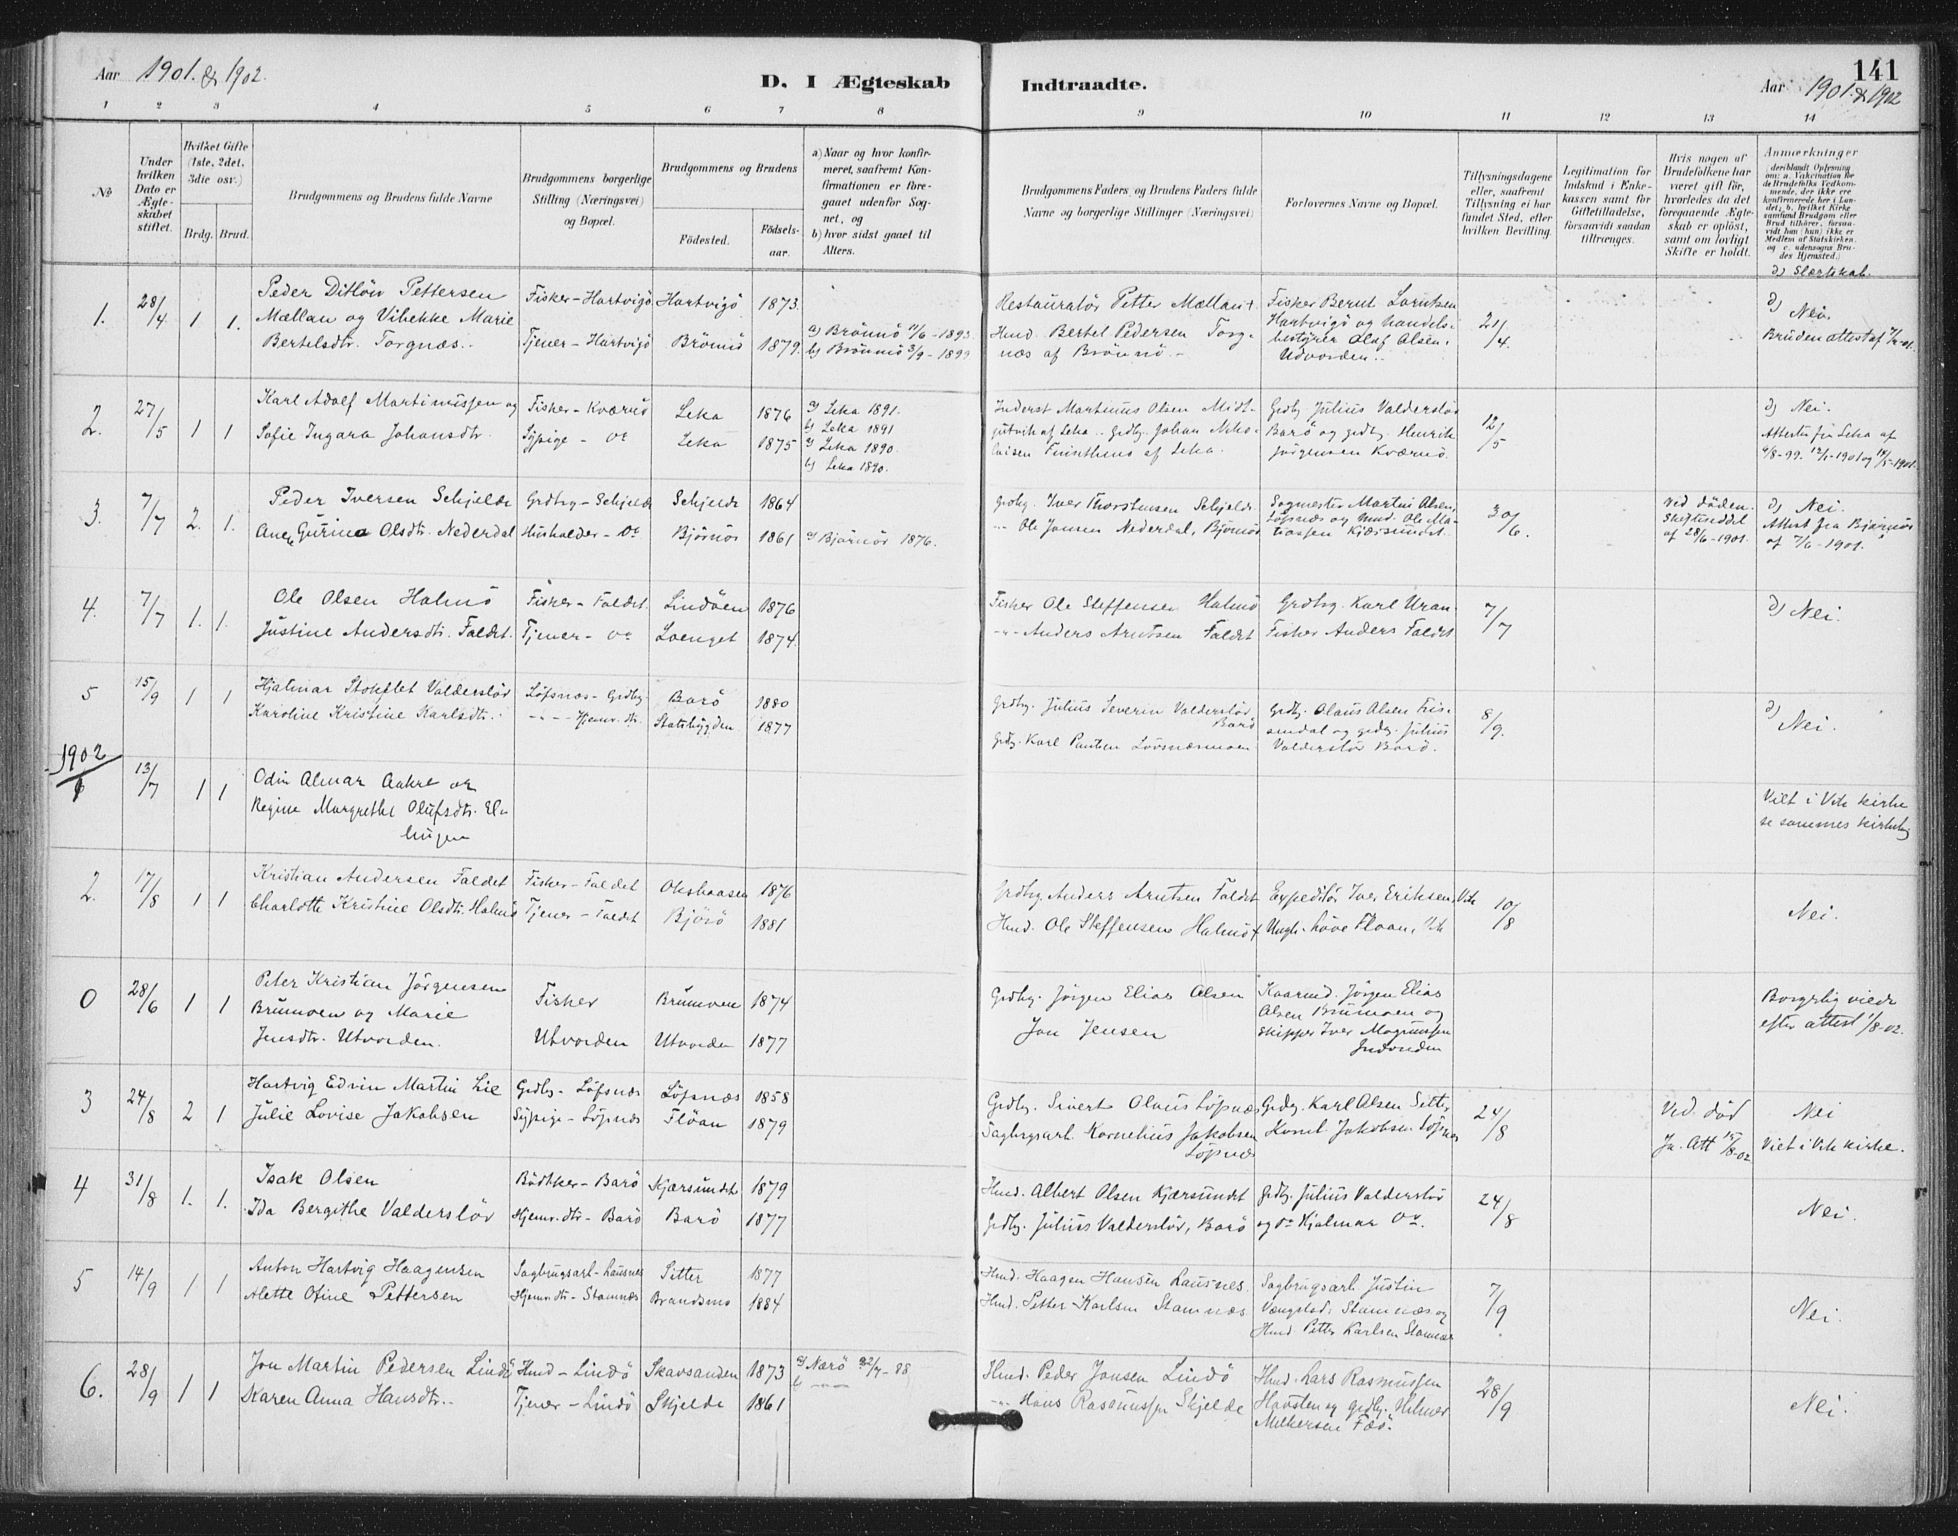 Aar 1901. & 1902.
D. I Ægteskab Indtraadte.
141
Aar 1901 & 1902
1 2 3 4 5 6 7 8 9 10 11 12 13 14
No
Under hvilken Dato er Ægteskabet stiftet.
Hvilket Gifte (1ste, 2det, 3die osv.)
Brdg. Brud.
Brudgommens og Brudens fulde Navne
Brudgommens borgerlige Stilling (Næringsvei) og Bopæl.
Brudgommens og Brudens
Födested.
Födselsaar.
a) Naar og hvor konfirmeret, saafremt Konfirmationen er foregaaet udenfor Sognet, og
b) hvor sidst gaaet til Alters.
Brudgommens Faders, og Brudens Faders fulde Navne og borgerlige Stillinger (Næringsvei)
Forlovernes Navne og Bopæl.
Tillysningsdagene eller, saafremt Tillysning ei har fundet Sted, efter hvilken Bevilling.
Legitimation for Indskud i Enkekassen samt for Giftetilladelse, forsaavidt saadan tiltrænges.
Hvis nogen af Brudefolkene har været gift för, hvorledes da det foregaaende Ægteskab er oplöst, samt om lovligt Skifte er holdt.
Anmærkninger (deriblandt Oplysning om: a. Vakcination for de Brudefolks Vedkommende, der ikke ere konfirmerede her i Landet; b. hvilket Kirkesamfund Brudgom eller Brud tilhörer, forsaavidt han (hun) ikke er Medlem af Statskirken, og c. udensogns Brudes Hjemsted.)
d) Slægtskab.
1. 28/4 1 1. Peder Ditlöw Pettersen Fisker - Hartvigö Hartvigö 1873. Restauratör Petter Mællan + Fisker Bernt Lorntsen 21/4. d) Nei.
Mællan og Vibekke Marie a) Brönnö 11/6 - 1893 Hmd. Bertel Pedersen Torg- Hartvigö og handels-
Bertelsdtr. Torgnæs. Tjener - Hartvigö Brönnö 1879. b) Brönnö 3/9 - 1899 næs af Brönnö. bestyrer Olaf Olsen, Utvorden.
2. 27/5 1 1 Karl Adolf Martinussen og Fisker - Kværnö Leka 1876 a) Leka 1891. Inderst Martinus Olsen Grdbg. Julius Valderslöv 12/5 d) Nei.
Sofie Ingara Johansdtr. Sypige - do Leka 1875 b) Leka 1891 af Leka. Grdbg. Johan Barö og grdbg. Henrik Attester fra Leka af
a) Leka 1890. af Leka. Jörgensen Kværnö.
b) Leka 1890.
3. 7/7 2. 1. Peder Iversen Schjelde Grdbrg - Schjelde Schjelde 1864 Grdbg. Iver Thorstensen Schjelde. Martin Olsen, 30/6. Ved döden. d) Nei.
Ane Gurine Olsdtr. Nederdal Husholder - do Björnör 1861 a) Björnör 1876. Ole Jonsen Nederdal, Björnör Löfsnæs og Hmd. Ole Kjærsundet. Skifteseddel af 28/6 - 1901. Attest fra Björnör af 7/6 - 1901.
4. 7/7 1. 1. Ole Olsen Halmö Fisker - Faldet. Lindöen 1876 Fisker Ole Steffensen Halmö Grdbg. Karl Uran. 7/7 d) Nei.
Justine Andersdtr. Faldet. Tjener - do Loenget 1874. -"- Anders Arntsen Faldet Fisker Anders Faldet
5 15/9 1 1 Hjalmar Stokflet Valderslöv Löfsnæs - Grdbg. Barö 1880 Grdbg. Julius Severin Valderslöv Barö Grdbg. Olaus Olsen 8/9. d) Nei.
Karoline Kristine Karlsdtr. -"- Hjemv.dtr. Statsbygden 1877 Grdbg. Karl Paulsen Lövsnæsmoen og grdbg. Julius Valderslöv Barö.
1902
1 13/7 1 1 Odin Almar Aakre og Viet i Vik kirke
Regine Margrethe Olufsdtr. El- se sammes kirkebog
lingen
2. 17/8 1 1 Kristian Andersen Faldet Fisker - Faldet Oksbaasen 1876 Grdbg Anders Arntsen Faldet Expeditör Iver Eriksen, Vik 10/8 Nei.
Charlotte Kristine Olsdtr. Halmö Tjener - Faldet Björö 1881 Hmd. Ole Steffensen Halmö + Ungk. Hove Floan, Vik
0 28/6 1 1 Peter Kristian Jörgensen Fisker Brunvoen 1874 Grdbg. Jörgen Elias Olsen Kaarmd. Jörgen Elias Borgerlig viede
Brunvoen og Marie Olsen Brunvoen og efter attest 1/8-02.
Jensdtr. Utvorden. Utvorden Utvorden 1877 Jon Jensen Skipper Iver Magnussen
3 24/8 2 1 Hartvig Edvin Martin Lie Grdbg - Löfsnæs Löfsnæs 1858 Grdbg. Sivert Olaus Löfsnæs Grdbg. Karl Olsen Sitter, 24/8 Ved. död Nei
Julie Lovise Jakobsen Sypige - Löfsnæs Flöan 1879 Sagbrgsarb. Kornelius Jakobsen Löfsnæs Jakobsen Löfsnæs Ja. Att 15/8-02 Viet i Vik kirke.
4 31/8 1. 1. Isak Olsen Bödtker - Barö Kjærsundet 1879 Hmd. Albert Olsen Kjærsundet Grdbg. Julius Valderslöv 24/8 Nei.
Ida Bergithe Valderslöv Hjemv.dtr - Barö Barö 1877 Grdbg. Julius Valderslöv, Barö og do Hjalmar do.
5 14/9 1 1 Anton Hartvig Haagensen Sagbrugsarb - Lausnes Sitter 1877 Hmd. Haagen Hansen Lausnes. Sagbrugsarb. Justin 7/9. Nei.
Alette Otine Pettersen Hjemv.dtr - Stamnæs Brandsmo 1884 Hmd. Petter Karlsen Stamnæs Vængstad, Stamnæs og
Hmd Petter Karlsen Stamnæs
6. 28/9 1 1 Jon Martin Pedersen Lindö Hmd - Lindö Skavsanden 1873 a) Nærö 22/7 - 88 Hmd. Peder Jonsen Lindö Hmd. Lars Rasmussen 28/9 Nei.
Karen Anna Hansdtr. Tjener - Lindö Skjelde 1861 b) -"- -"- Hans Rasmussen Skjelde Havsten og grdbg. Hilmer